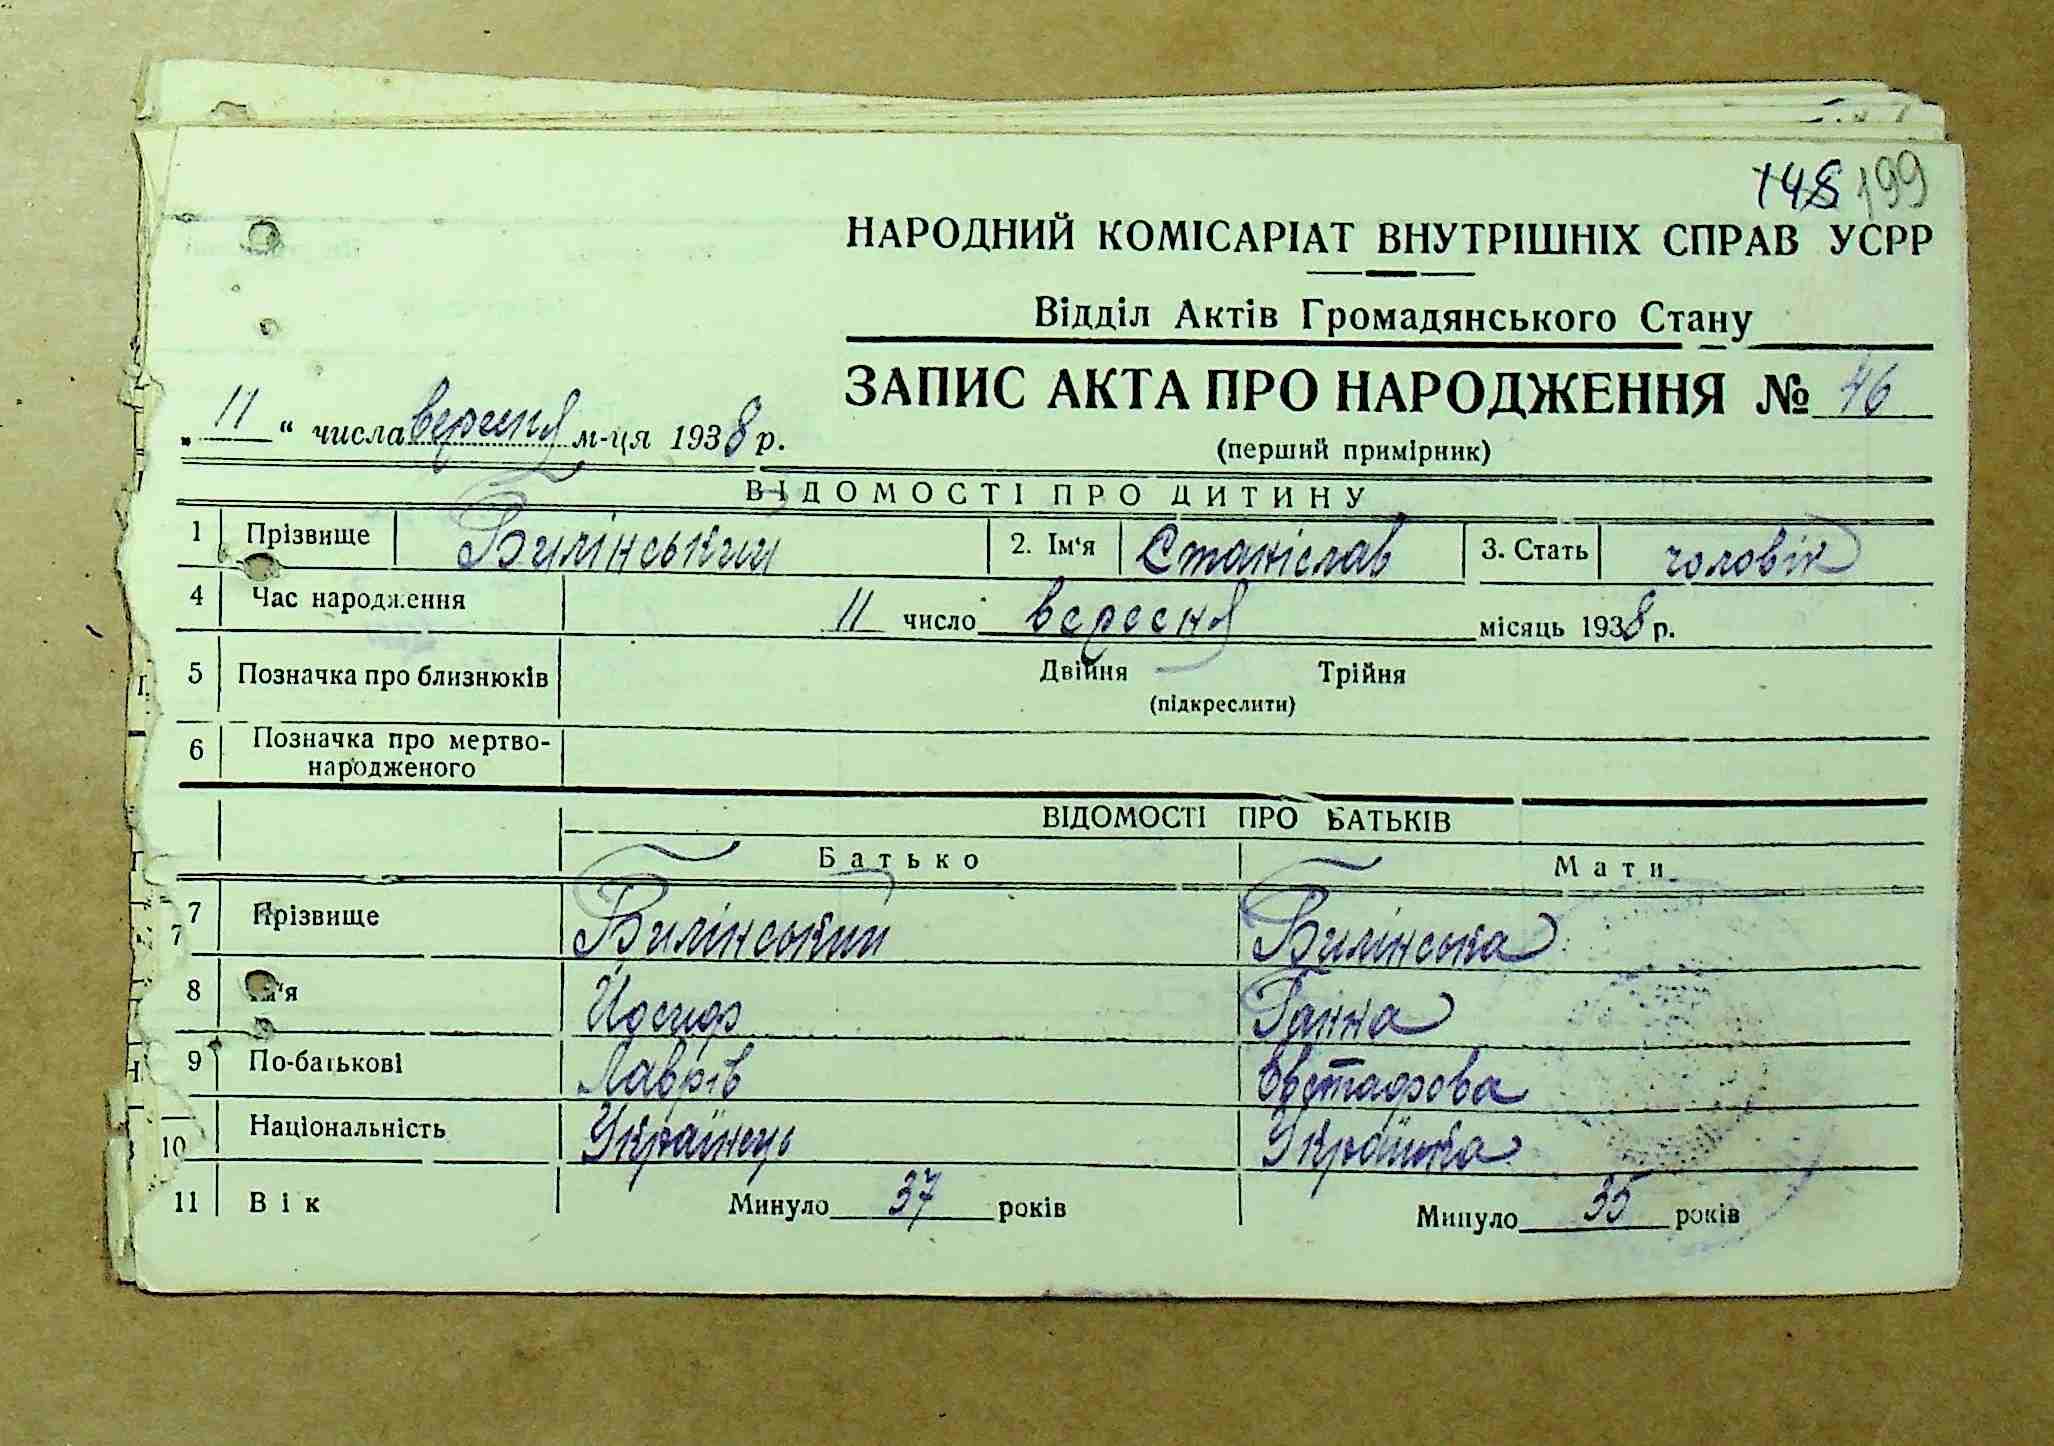 148 199
НАРОДНИЙ КОМІСАРІАТ ВНУТРІШНІХ СПРАВ УСРР
Відділ Актів Громадянського Стану
ЗАПИС АКТА ПРО НАРОДЖЕННЯ № 46
„ 11 “ числа вересня м-ця 1938 р.
(перший примірник)
ВІДОМОСТІ ПРО ДИТИНУ
1 Прізвище Билінський 2. Ім'я Станіслав 3. Стать чоловік
4 Час народження 11 число вересня місяць 1938 р.
5 Позначка про близнюків Двійня Трійня
(підкреслити)
6 Позначка про мертво-
народженого
ВІДОМОСТІ ПРО БАТЬКІВ
Батько Мати
7 Прізвище Билінський Билінська
8 Ім'я Йосиф Ганна
9 По-батькові Лаврів Євстафова
10 Національність Українець Українка
11 Вік Минуло 37 років Минуло 35 років